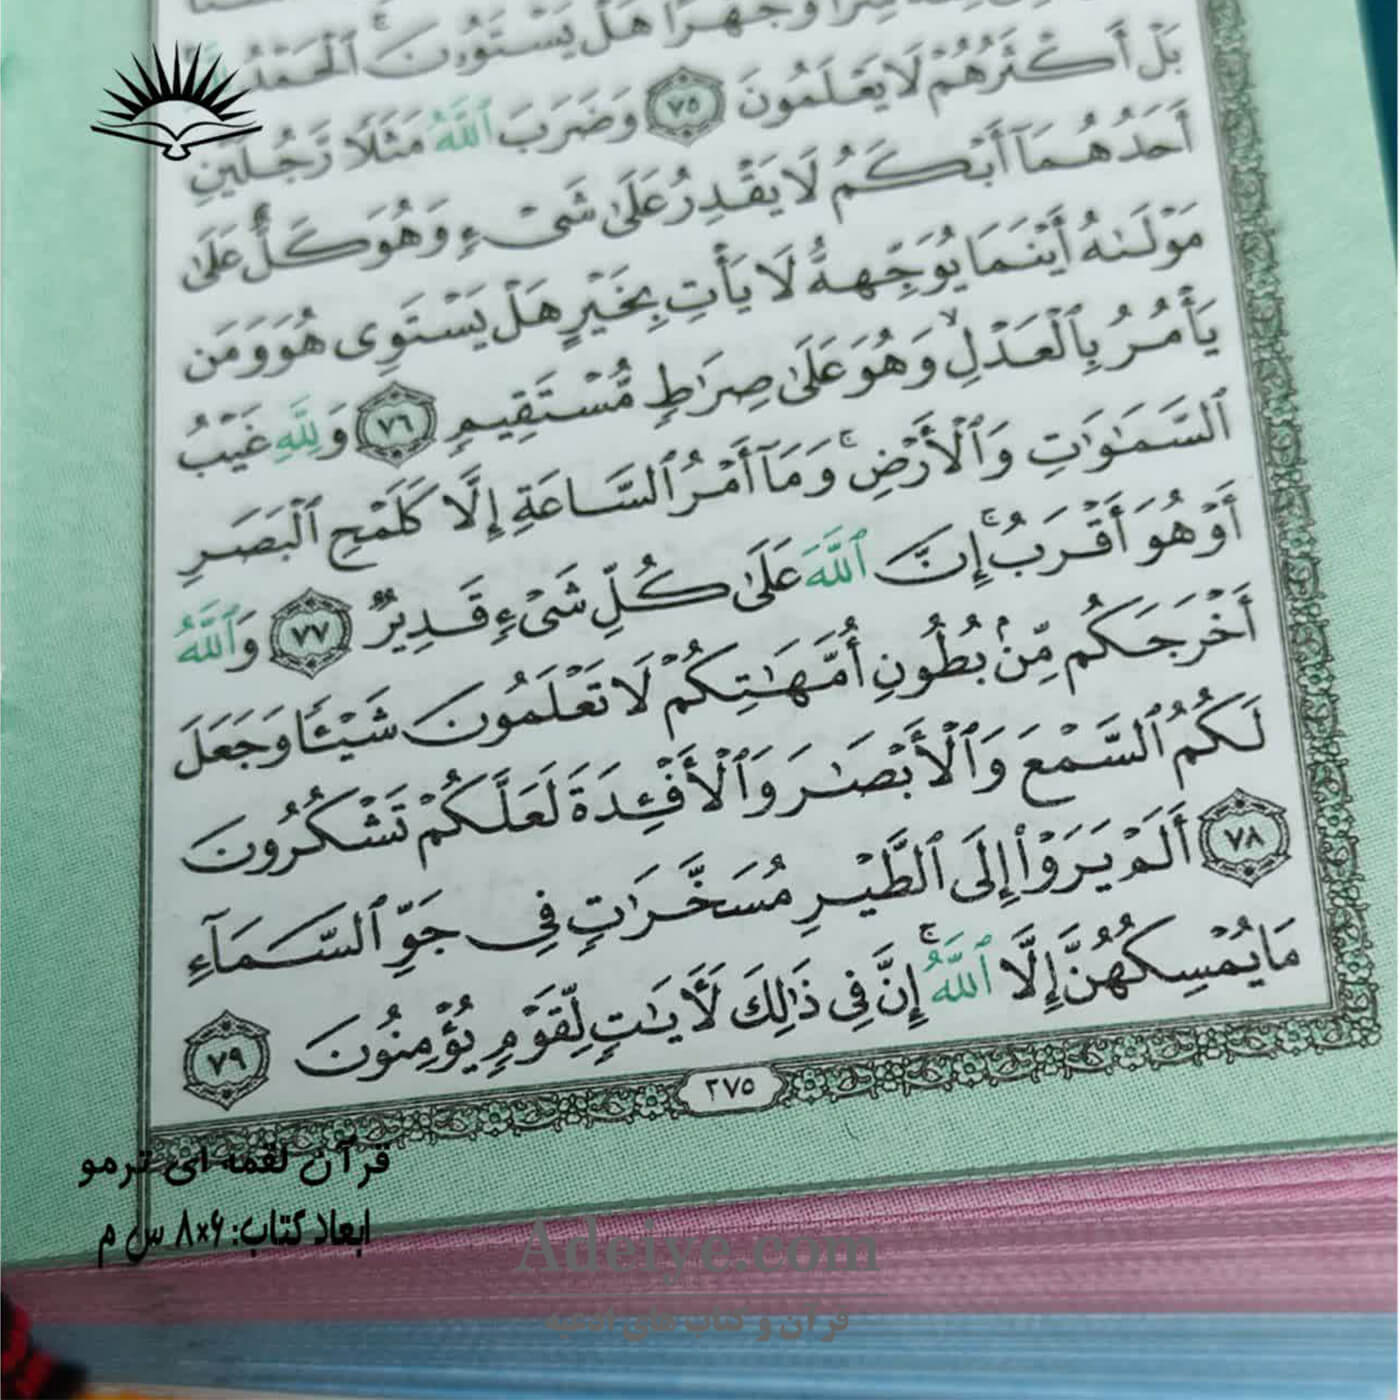 سِرًّا وَجَهْرًا هَلْ يَسْتَوُۥنَ ۚ ٱلْحَمْدُ
بَلْ أَكْثَرُهُمْ لَا يَعْلَمُونَ ٧٥ وَضَرَبَ ٱللَّهُ مَثَلًا رَّجُلَيْنِ
أَحَدُهُمَآ أَبْكَمُ لَا يَقْدِرُ عَلَىٰ شَىْءٍ وَهُوَ كَلٌّ عَلَىٰ
مَوْلَىٰهُ أَيْنَمَا يُوَجِّههُّ لَا يَأْتِ بِخَيْرٍ هَلْ يَسْتَوِى هُوَ وَمَن
يَأْمُرُ بِٱلْعَدْلِ ۙ وَهُوَ عَلَىٰ صِرَٰطٍ مُّسْتَقِيمٍ ٧٦ وَلِلَّهِ غَيْبُ
ٱلسَّمَـٰوَٰتِ وَٱلْأَرْضِ ۚ وَمَآ أَمْرُ ٱلسَّاعَةِ إِلَّا كَلَمْحِ ٱلْبَصَرِ
أَوْ هُوَ أَقْرَبُ ۚ إِنَّ ٱللَّهَ عَلَىٰ كُلِّ شَىْءٍ قَدِيرٌ ٧٧ وَٱللَّهُ
أَخْرَجَكُم مِّنۢ بُطُونِ أُمَّهَـٰتِكُمْ لَا تَعْلَمُونَ شَيْـًٔا وَجَعَلَ
لَكُمُ ٱلسَّمْعَ وَٱلْأَبْصَـٰرَ وَٱلْأَفْـِٔدَةَ لَعَلَّكُمْ تَشْكُرُونَ
٧٨ أَلَمْ يَرَوْا۟ إِلَى ٱلطَّيْرِ مُسَخَّرَٰتٍ فِى جَوِّ ٱلسَّمَآءِ
مَا يُمْسِكُهُنَّ إِلَّا ٱللَّهُ ۚ إِنَّ فِى ذَٰلِكَ لَـَٔايَـٰتٍ لِّقَوْمٍ يُؤْمِنُونَ ٧٩
٢٧٥
قرآن لقمه ای ترمو
ابعاد کتاب: ۶×۸ س م
Adeiye.com
قرآن و کتاب های ادعیه